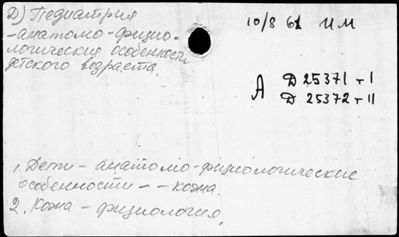 Д) Педиатрия
-анатомо-физио-
логические особенности
детского возраста.
10/8 61 ИМ
А Д 25371 т I
Д 25372 т II
1. Дети - анатомо-физиологические
особенности - - кожа.
2. Кожа - физиология.